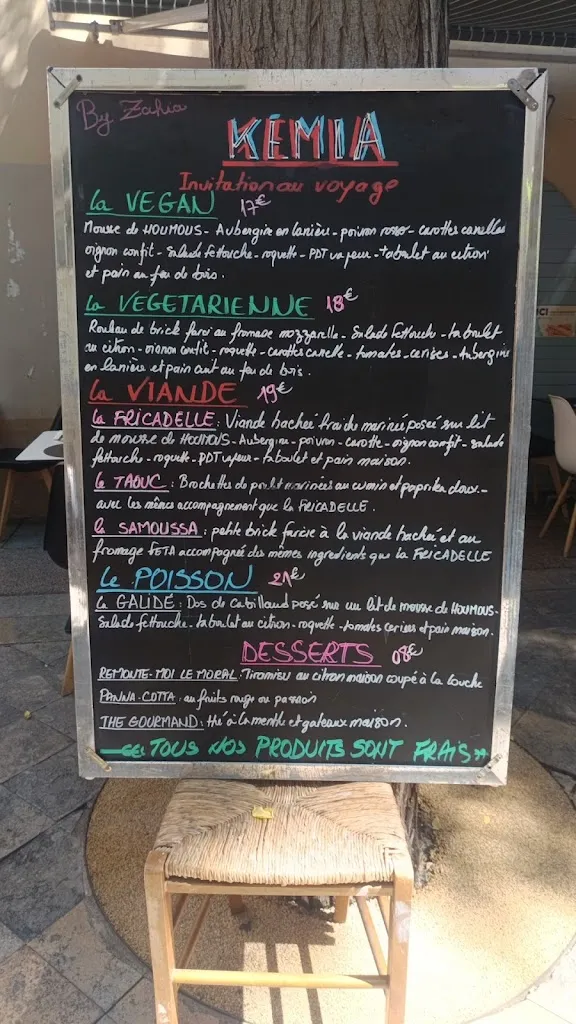 By Zahia
KEMIA
Invitation au voyage
la VEGAN 17€
Mousse de HOUMOUS - Aubergine en lanière - poivron rouge - carottes canelles
oignon confit - Salade fettouche - roquette - PDT vapeur - taboulet au citron
et pain au feu de bois.
la VEGETARIENNE 18€
Rouleau de brick farci au fromage mozzarella - Salade fettouche - taboulet
au citron - oignon confit - roquette - carottes canelle - tomates - cerises - Aubergine
en lanière et pain cuit au feu de bois.
la VIANDE 19€
la FRICADELLE : Viande hachée fraiche marinée posée sur lit
de mousse de HOUMOUS - Aubergine - poivron - carotte - oignon confit - salade
fettouche - roquette - PDT vapeur - taboulet et pain maison.
le TAOUC : Brochettes de poulet marinées au cumin et paprika doux -
avec les mêmes accompagnement que la FRICADELLE.
la SAMOUSSA : petite brick farcie à la viande hachée et au
fromage FETA accompagné des mêmes ingredients que la FRICADELLE
Le POISSON 21€
la GALIDE : Dos de Cabillaud posé sur un lit de mousse de HOUMOUS -
Salade fettouche - taboulet au citron - roquette - tomates cerises et pain maison.
DESSERTS 08€
REMOUTE-MOI LE MORAL : Tiramisu au citron maison coupé à la louche
PANNA-COTTA : au fruits rouge ou passion
THE GOURMAND : thé à la menthe et gateaux maison.
"TOUS NOS PRODUITS SONT FRAIS"